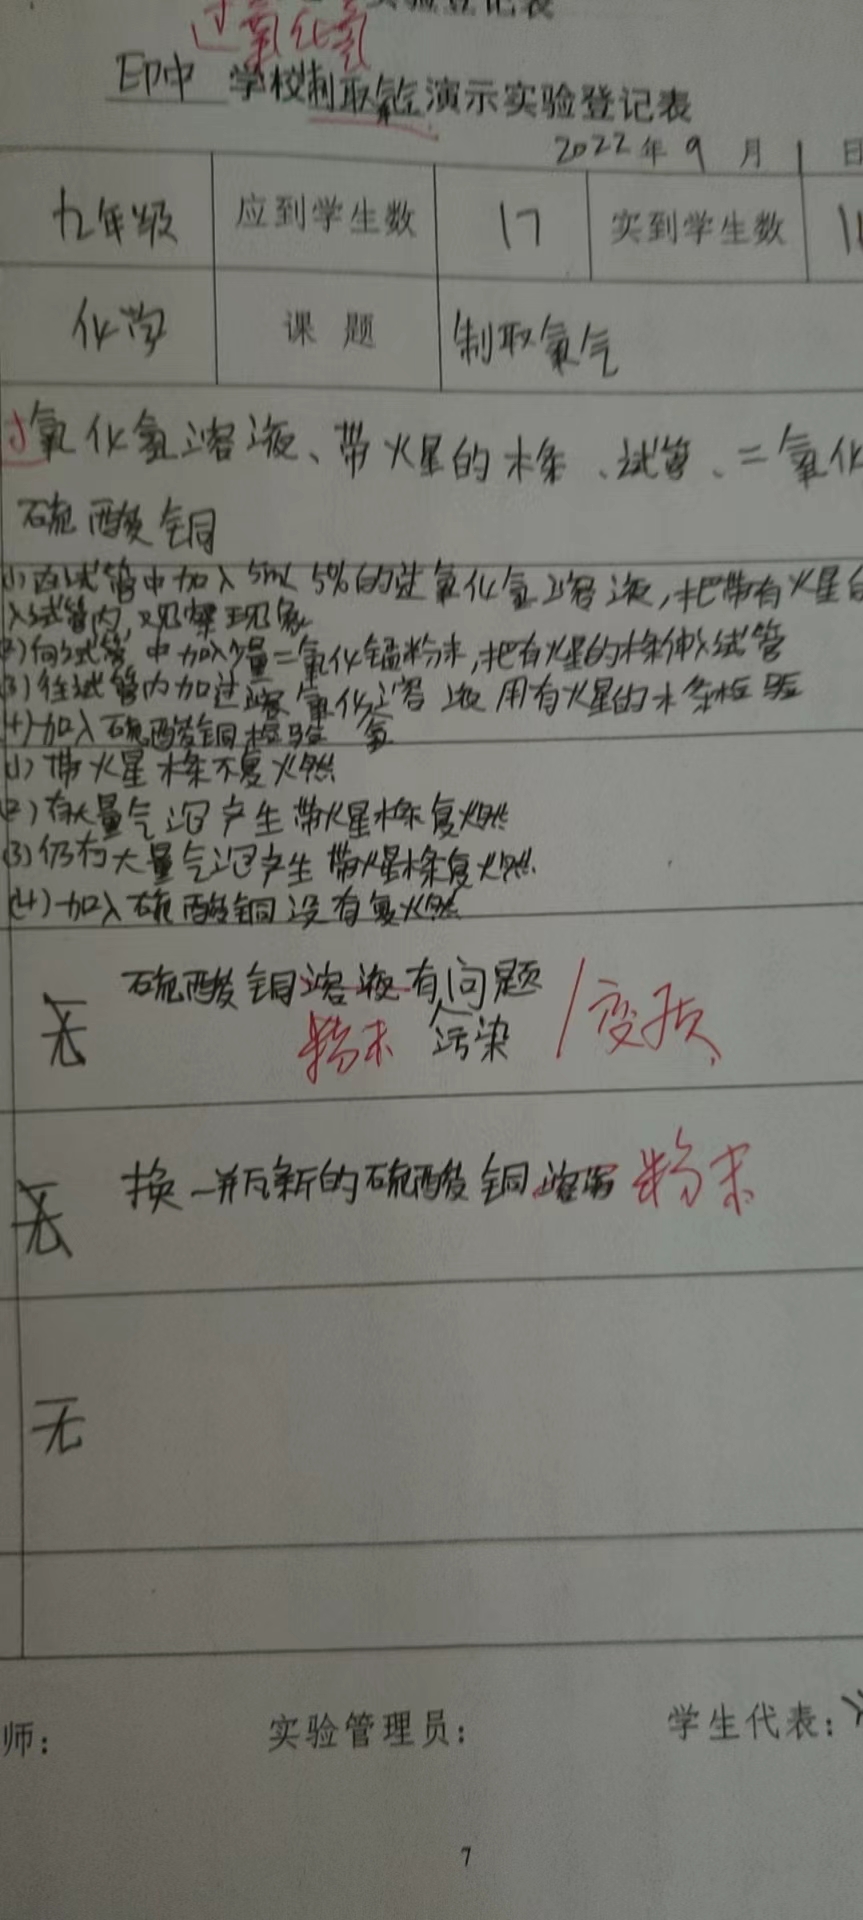 实验登记表
过氧化氢
印中 学校制取氧气演示实验登记表
2022年9月1日
九年级 应到学生数 17 实到学生数
化学 课题 制取氧气
过氧化氢溶液、带火星的木条、试管、二氧化
硫酸铜
(1)向试管中加入5mL 5%的过氧化氢溶液,把带有火星的
入试管内,观察现象
(2)向试管中加入少量二氧化锰粉末,把有火星的木条伸入试管
(3)往试管内加过氧化氢溶液 用有火星的木条检验
(4)加入硫酸铜检验
(1)带火星木条不复燃
(2)有大量气泡产生带火星木条复燃
(3)仍有大量气泡产生 带火星木条复燃
(4)加入硫酸铜没有复燃
无 硫酸铜溶液有问题
粉末 污染 /变质
无 换一瓶新的硫酸铜 粉末
无
师: 实验管理员: 学生代表:
7